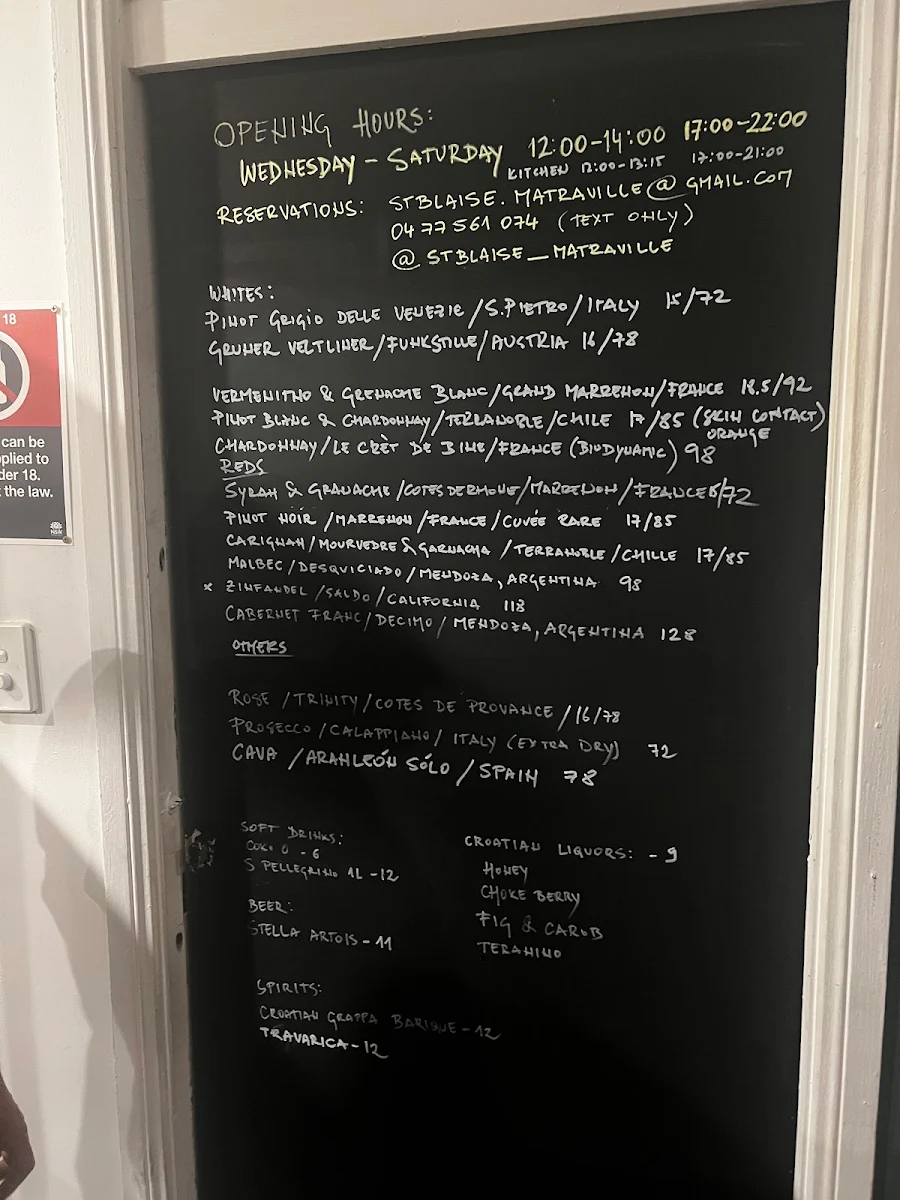 OPENING HOURS:
WEDNESDAY - SATURDAY 12:00-14:00 17:00-22:00
KITCHEN 12:00-13:15 17:00-21:00
RESERVATIONS: STBLAISE.MATRAVILLE@GMAIL.COM
0477 561 074 (TEXT ONLY)
@STBLAISE_MATRAVILLE
WHITES:
PINOT GRIGIO DELLE VENEZIE/S.PIETRO/ITALY 15/72
GRUNER VELTLINER/FUNKSTILLE/AUSTRIA 16/78
VERMENITNO & GRENACHE BLANC/GRAND MARRENON/FRANCE 18.5/92
PINOT BLANC & CHARDONNAY/TERRANOBLE/CHILE 17/85 (SKIN CONTACT)
ORANGE
CHARDONNAY/LE CRÈT DE BINE/FRANCE (BIODYNAMIC) 98
REDS
SYRAH & GRANACHE/COTES DE RHONE/MARRENON/FRANCE 15/72
PINOT NOIR/MARRENON/FRANCE/CUVÉE RARE 17/85
CARIGNAN/MOURVEDRE & GARNACHA/TERRANOBLE/CHILLE 17/85
MALBEC/DESQUICIADO/MENDOZA, ARGENTINA 98
x ZINFANDEL/SALDO/CALIFORNIA 118
CABERNET FRANC/DECIMO/MENDOZA, ARGENTINA 128
OTHERS
ROSE/TRINITY/COTES DE PROVANCE/16/78
PROSECCO/CALAPPIANO/ITALY (EXTRA DRY) 72
CAVA/ARANLEÓN SÓLO/SPAIN 78
SOFT DRINKS:
COKE 0 - 6
S PELLEGRINO 1L - 12
BEER:
STELLA ARTOIS - 11
SPIRITS:
CROATIAN GRAPPA BARIQUE - 12
TRAVARICA - 12
CROATIAN LIQUORS: - 9
HONEY
CHOKE BERRY
FIG & CAROB
TERANINO
18
can be
plied to
der 18.
the law.
NSW